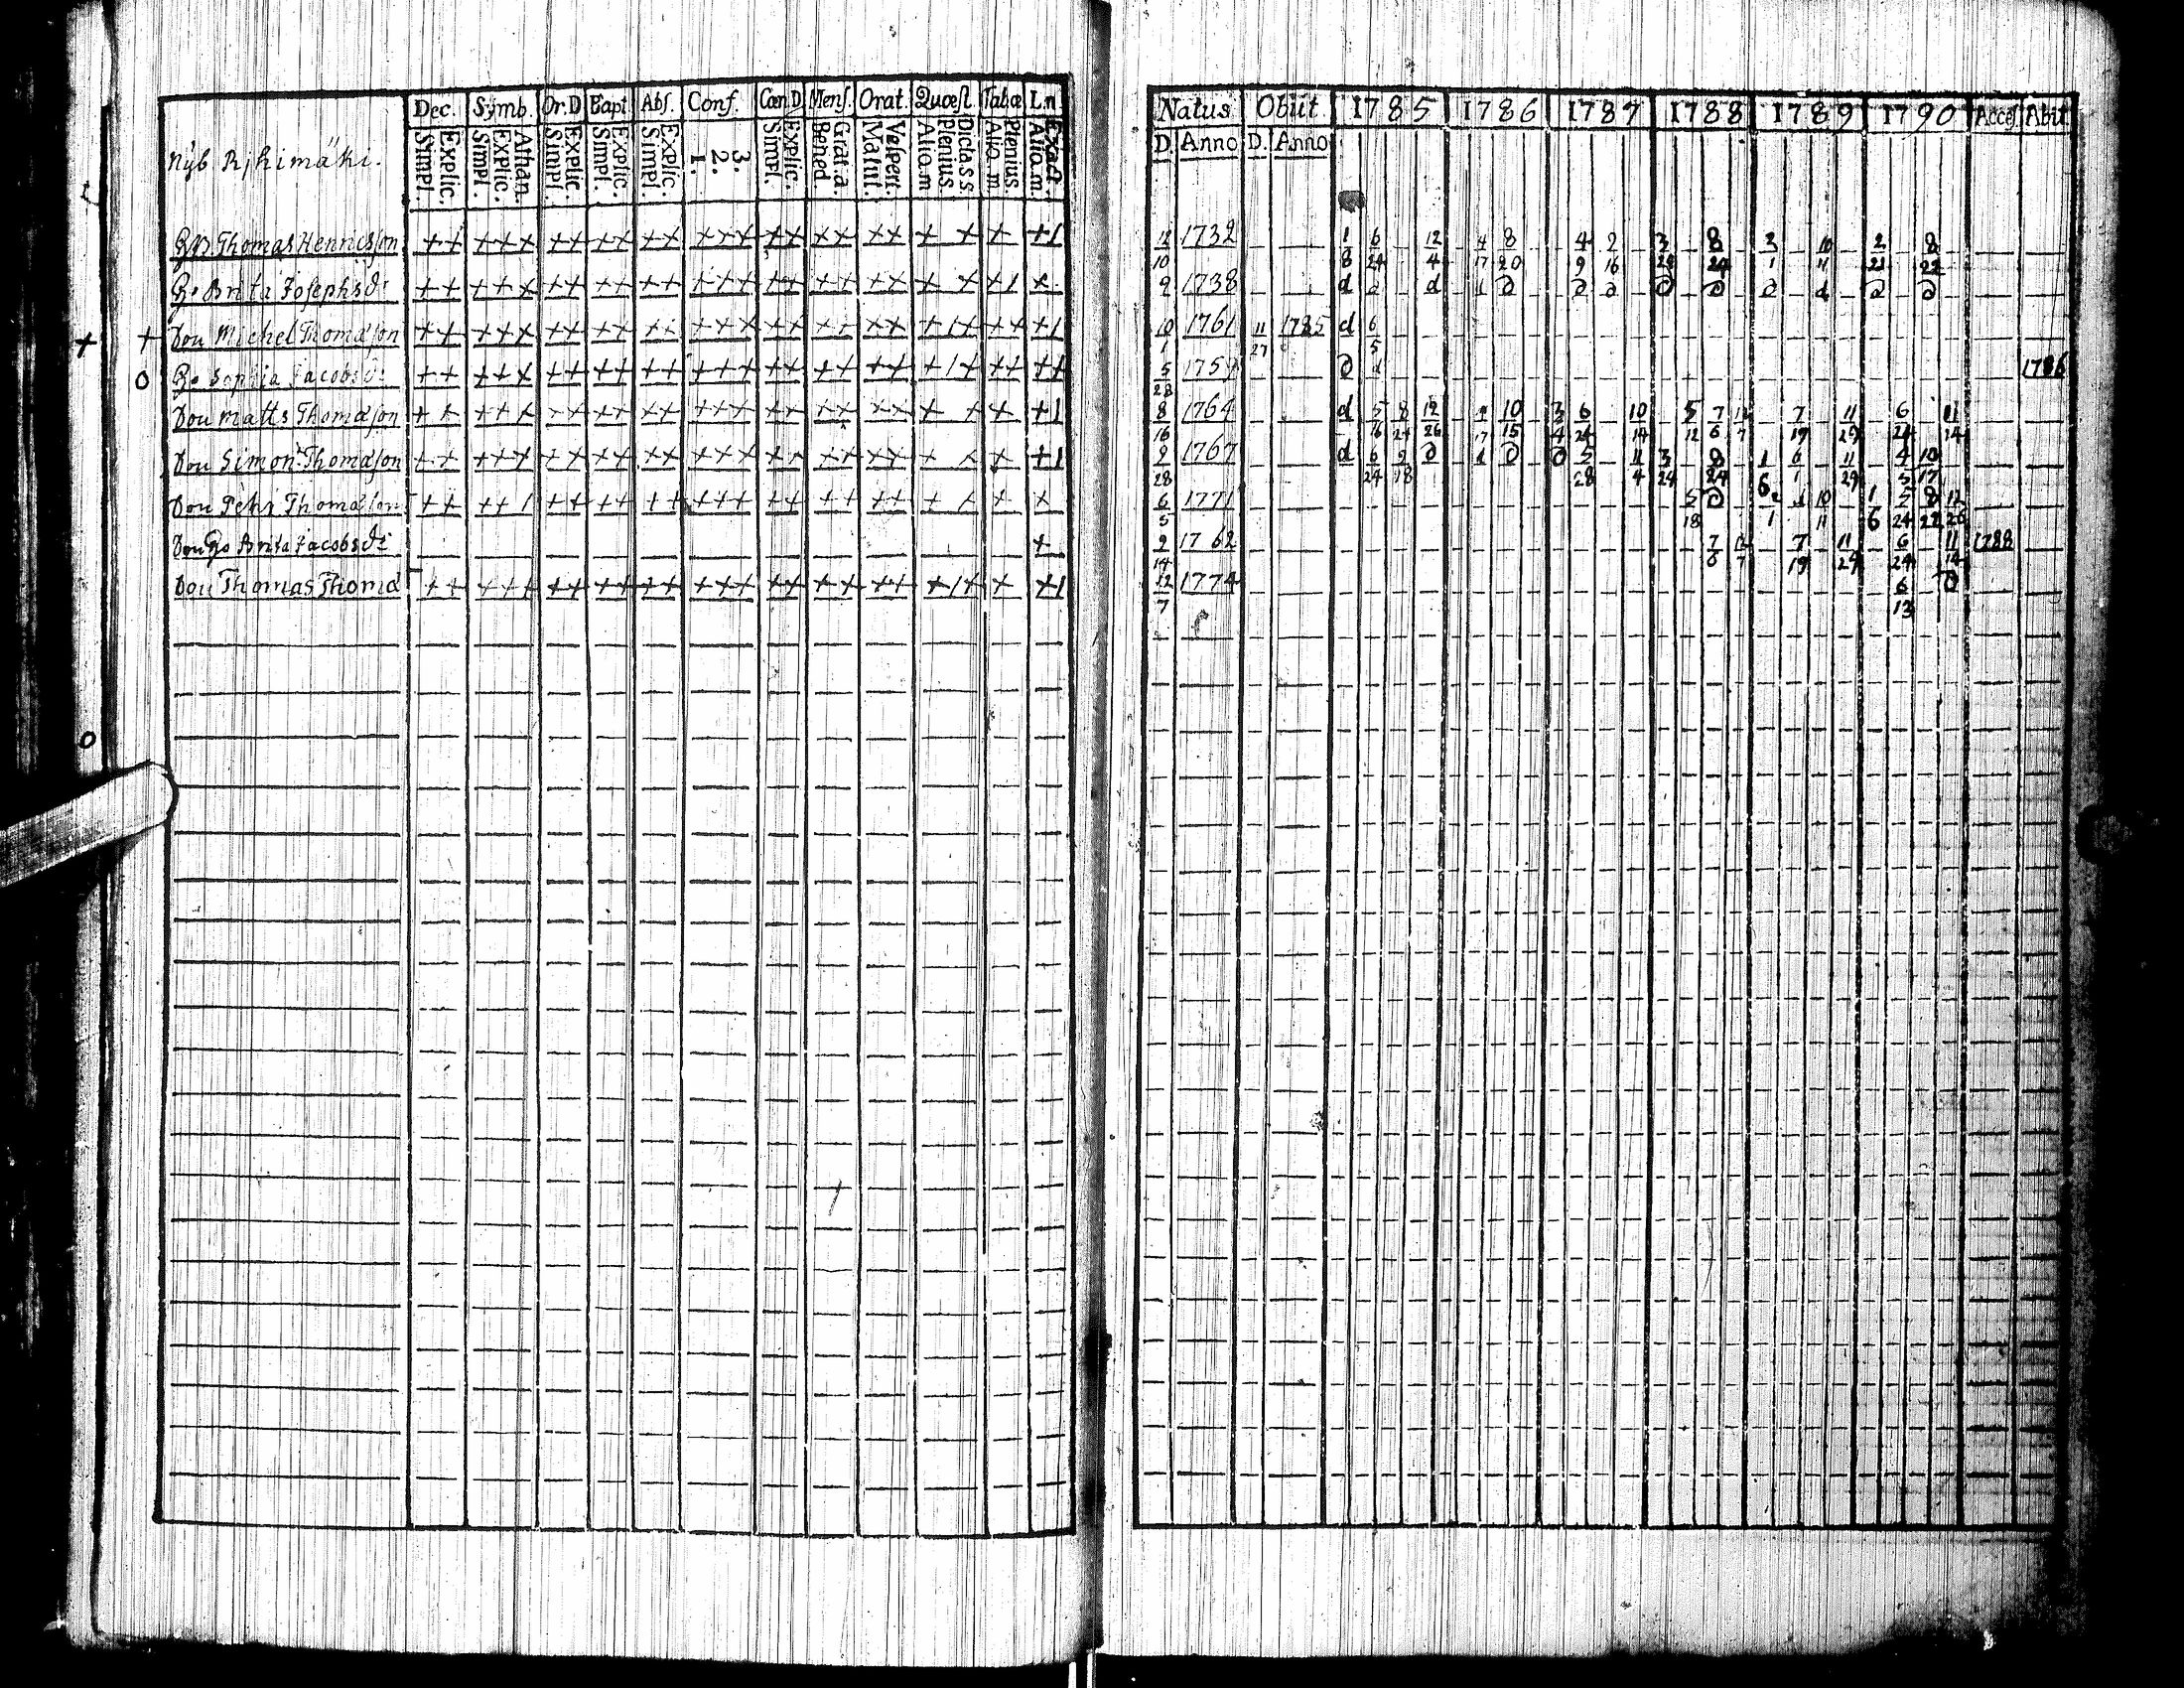 Dec. Symb. Or.D Bapt. Abs. Conf. Cœn.D. Mens. Orat. Quæst. Tabæ L.n
Simpl. Explic. Simpl. Explic. Athan. Simpl. Explic. Simpl. Explic. Simpl. Explic. 1. 2. 3. Simpl. Explic. Bened. Grat.a. Matut. Vespert. Alio.m Plenius Dicta s.s. Alio m. Plenius. Alio.m. Exact.
Nÿb. Rjhimäki.
Thomas Henricsson ++ +++ ++ ++ ++ +++ ++ ++ ++ + + + +1
Brita Josephsdr ++ +++ ++ ++ ++ +++ ++ ++ ++ + + +1 +
+ + Dou Michel Thomasson ++ +++ ++ ++ ++ +++ ++ ++ ++ +1+ ++ +1
o Sophia Jacobsdr ++ +++ ++ ++ ++ +++ ++ ++ ++ +1+ ++ ++
Dou Matts Thomasson ++ +++ ++ ++ ++ +++ ++ ++ ++ + + + +1
Dou Simon Thomasson ++ +++ ++ ++ ++ +++ ++ ++ ++ + + + +1
Dou Pehr Thomasson ++ ++1 ++ ++ ++ +++ ++ ++ ++ + + + +
Dou Brita Jacobsdr +
Dou Thomas Thoma ++ +++ ++ ++ ++ +++ ++ ++ ++ +1+ + +1
o
Natus. Obiit. 1785 1786 1787 1788 1789 1790 Acces Abit
D. Anno D. Anno
12 1732 1 6 12 4 8 4 2 3 8 3 10 2 8
10 8 24 4 17 20 9 16 24 24 1 11 21 22
9 1738 d d d d d d d d d d d d d
10 1761 11 1785 d 6
1 27 5
5 1759 d d 1786
28
8 1764 d 5 8 12 4 10 3 6 10 5 7 12 7 11 6 11
16 16 24 26 17 15 4 24 14 12 6 7 19 29 24 14
9 1767 d 6 9 d d d d 5 11 3 8 1 6 11 4 10
28 24 18 28 4 24 24 6 1 29 5 17
6 1771 5 d 2 d 10 1 5 8 12
5 18 1 11 6 24 22 26
9 1762 7 12 7 11 6 11 1788
14 6 7 19 29 24 14
12 1774 6 d
7 13